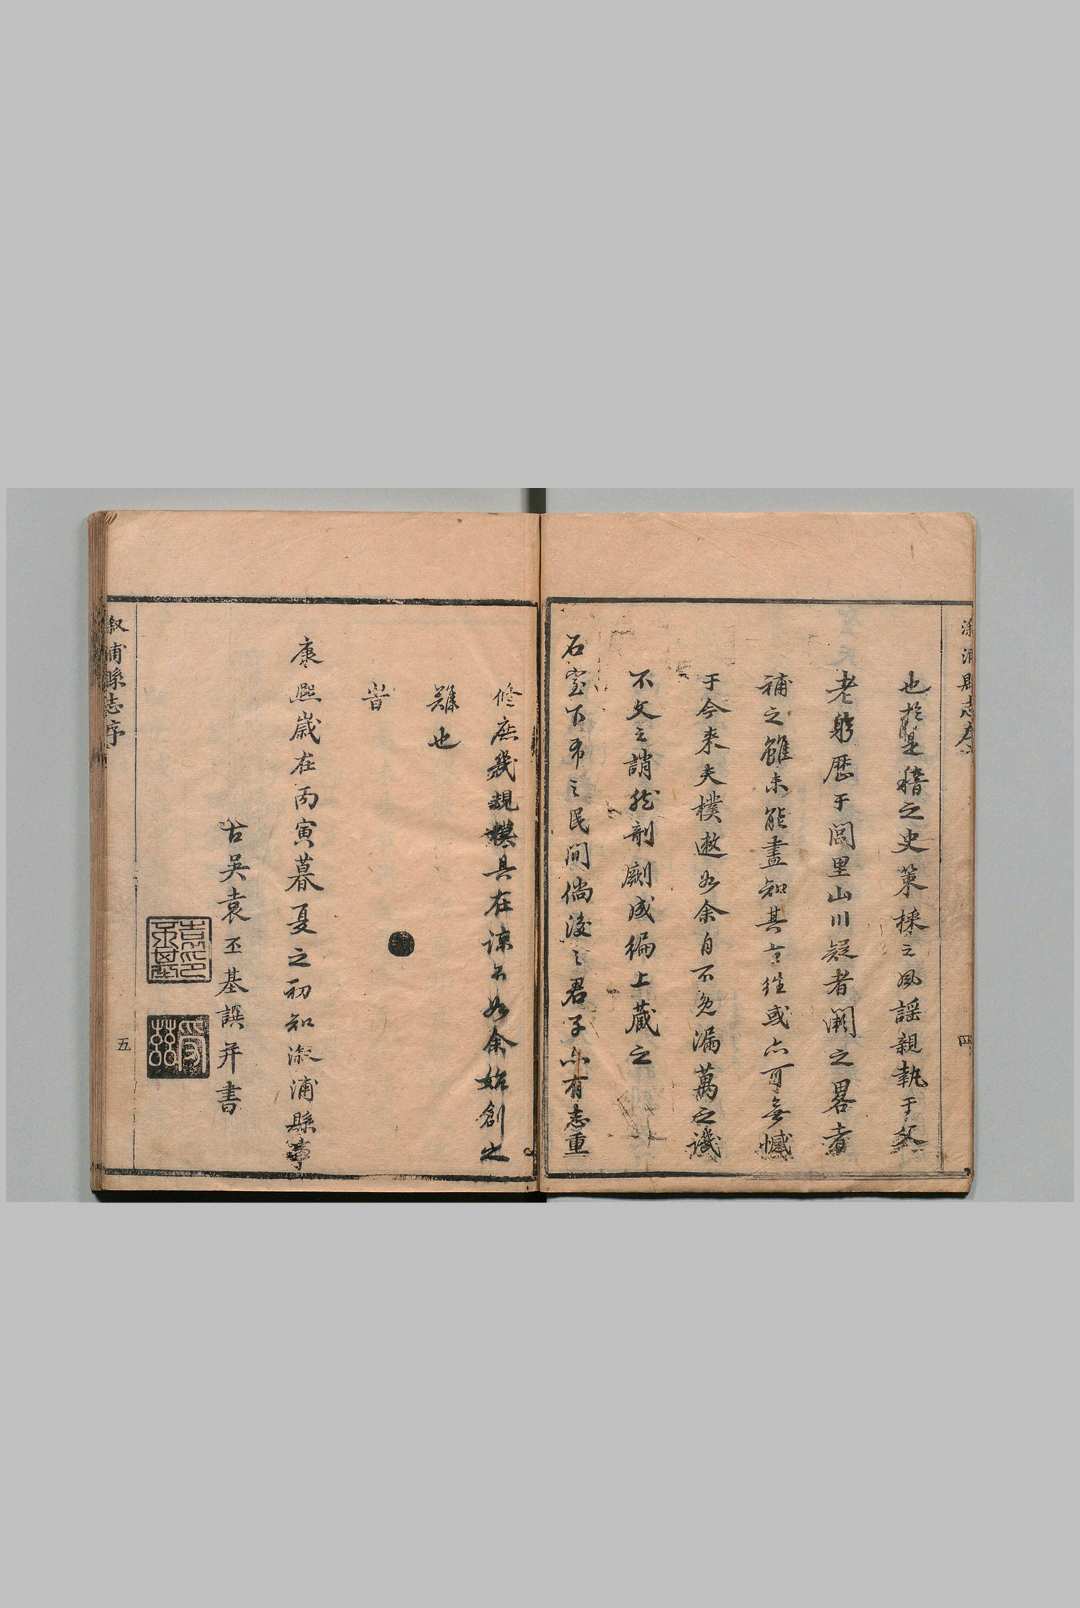 溆浦縣志序
四
也於是稽之史策採之風謡親執于父
老躬歷于閭里山川疑者闕之畧者
補之雖未能盡知其古往或亦可無憾
于今來夫樸遬如余自不免漏萬之譏
不文之誚然剞劂成編上藏之
石室下布之民間倘後之君子亦有志重
修庶幾規模具在諒不如余始創之
難也
旹
康熙歲在丙寅暮夏之初知溆浦縣事
古吳袁丕基譔并書
溆浦縣志序
五